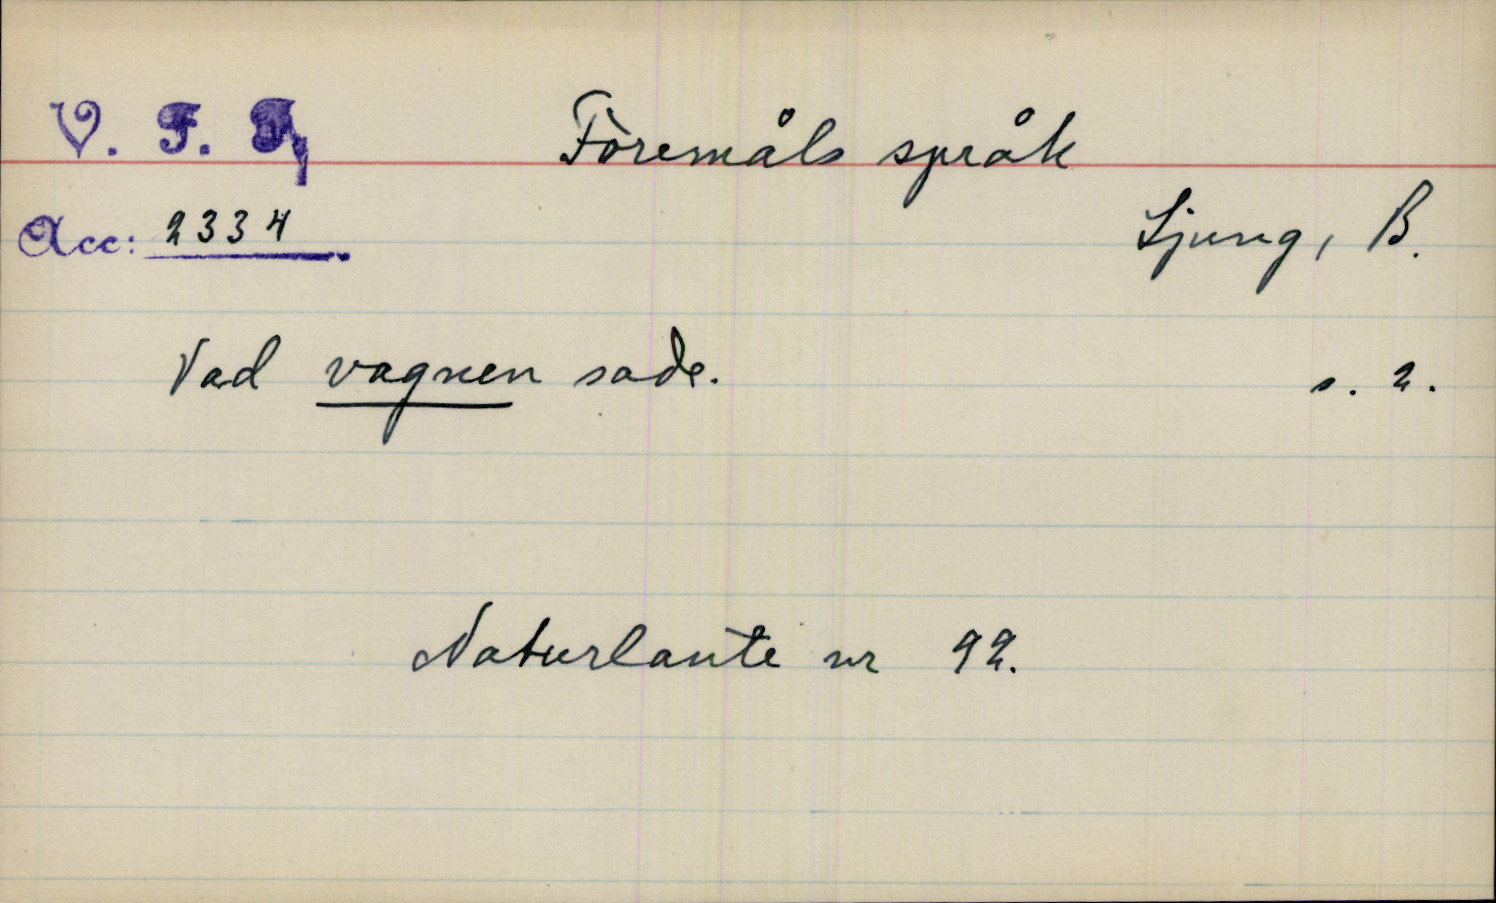 V. F. F.
Föremåls språk
Acc: 2334
Ljung, B.
Vad vagnen sade.
s. 2.
Naturlaute nr 92.